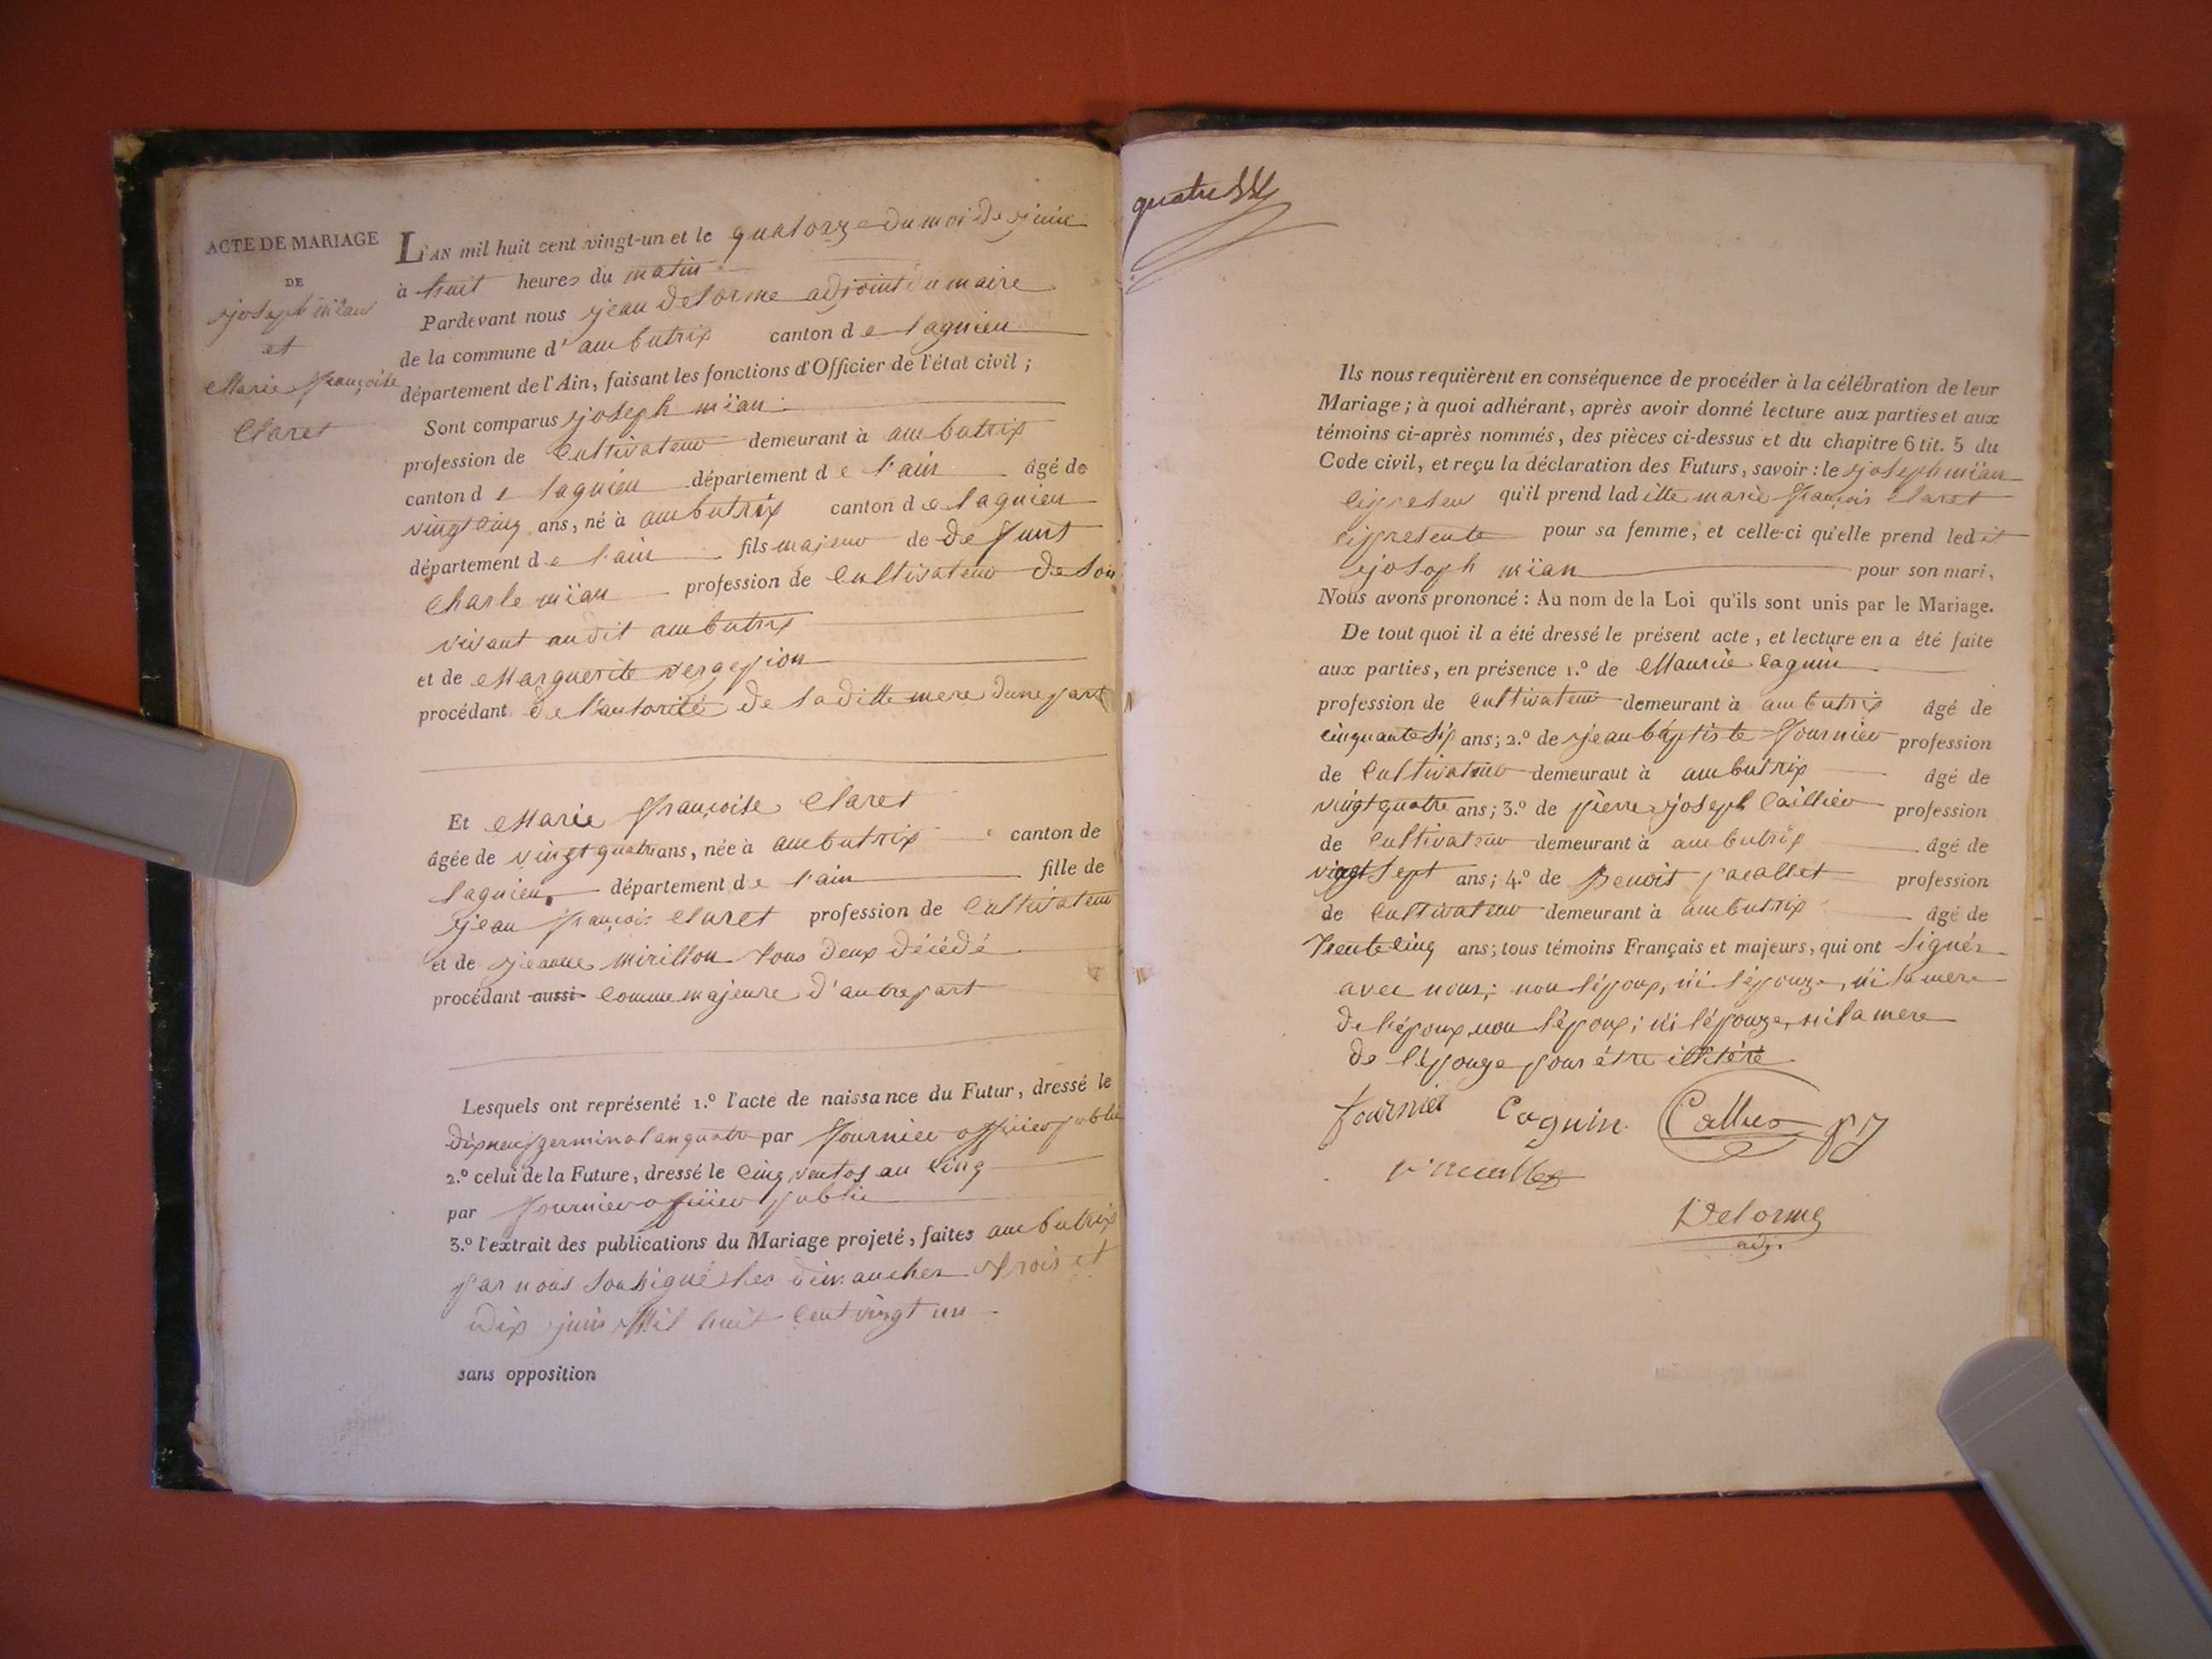 ACTE DE MARIAGE
DE
joseph mïan
et
Marie françoise
Claret
L'AN mil huit cent vingt-un et le quatorze du moi de juin
à huit heures du matin
Pardevant nous jean Delorme adjoint du maire
de la commune d'ambutrix canton de lagnieu
département de l'Ain, faisant les fonctions d'Officier de l'état civil ;
Sont comparus joseph mïan
profession de Cultivateur demeurant à ambutrix
canton de lagnieu département de l'ain âgé de
vingt cinq ans, né à ambutrix canton de lagnieu
département de l'ain fils majeur de defunt
Charle mïan profession de Cultivateur de son
vivant audit ambutrix
et de Marguerite
procédant de l'autorité de laditte mere dune part
Et Marie françoise Claret
âgée de vingt quatre ans, née à ambutrix canton de
lagnieu département de l'ain fille de
jean françois Claret profession de Cultivateur
et de jeanne mirillon tous deux décédé
procédant aussi comme majeure d'autre part
Lesquels ont représenté 1.º l'acte de naissance du Futur, dressé le
dix neuf germinal an quatre par fournier officier public
2.º celui de la Future, dressé le cinq ventos an cinq
par fournier officier public
3.º l'extrait des publications du Mariage projeté, faites ambutrix
par nous soussigné les dimanches trois et
dix juin Mil huit cent vingt un
sans opposition
quatre
Ils nous requièrent en conséquence de procéder à la célébration de leur
Mariage ; à quoi adhérant, après avoir donné lecture aux parties et aux
témoins ci-après nommés, des pièces ci-dessus et du chapitre 6 tit. 5 du
Code civil, et reçu la déclaration des Futurs, savoir : le joseph mïan
qu'il prend laditte marie françois Claret
cipresente pour sa femme, et celle-ci qu'elle prend ledit
joseph mïan pour son mari,
Nous avons prononcé : Au nom de la Loi qu'ils sont unis par le Mariage.
De tout quoi il a été dressé le présent acte, et lecture en a été faite
aux parties, en présence 1.º de Maurice Caguin
profession de Cultivateur demeurant à ambutrix âgé de
cinquante six ans ; 2.º de jean baptiste fournier profession
de Cultivateur demeurant à ambutrix âgé de
vingt quatre ans ; 3.º de pierre joseph Caillier profession
de Cultivateur demeurant à ambutrix âgé de
vingt sept ans ; 4.º de Benoit pacallet profession
de Cultivateur demeurant à ambutrix âgé de
trente cinq ans ; tous témoins Français et majeurs, qui ont signés
avec nous ; non l'époux, ni l'épouze, ni la mere
de l'époux non l'époux ; ni l'épouze, ni la mere
de l'épouze pour être illitéré
fournier Caguin
Delorme
adj.